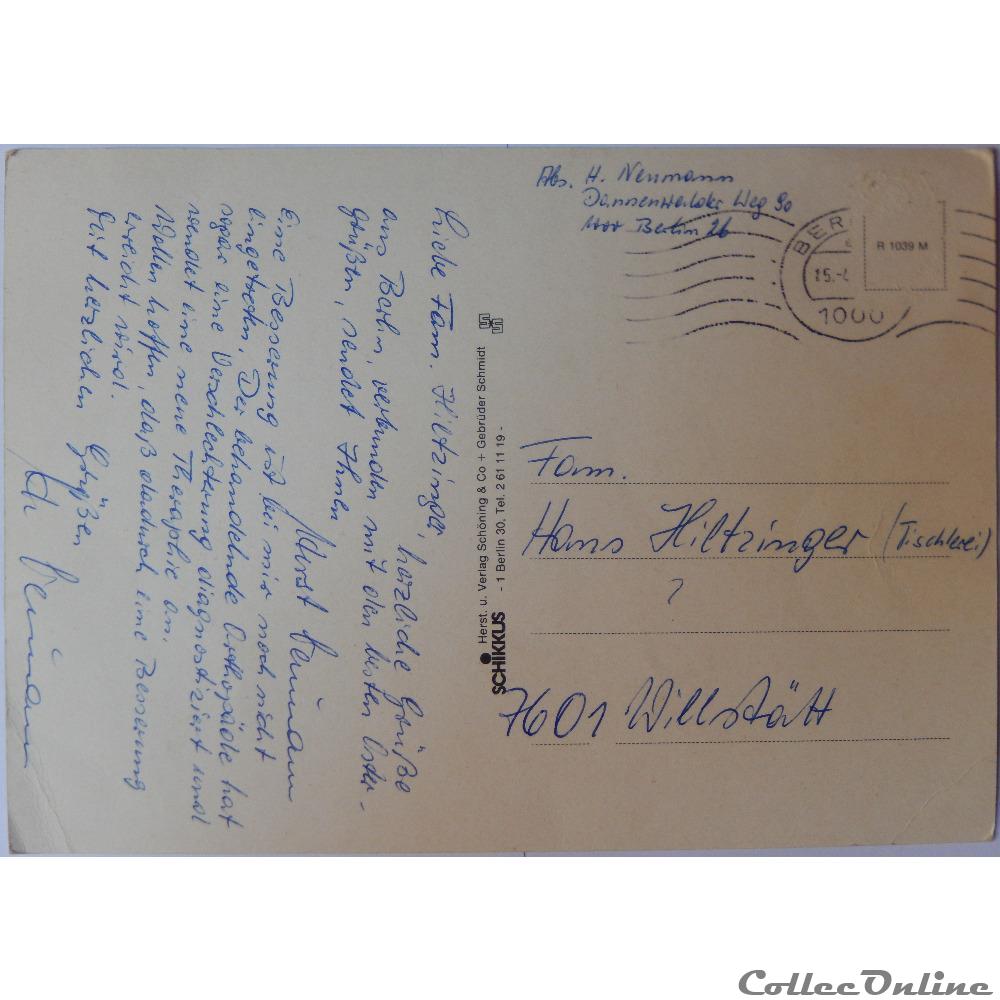 Abs. H. Neumann
Dannenwalder Weg 90
1000 Berlin 26
BER
15.-4
1000
R 1039 M
Liebe Fam. Hiltzinger,
herzliche Grüße
aus Berlin, verbunden mit den besten Oster-
grüßen, sendet Ihnen
Horst Neumann
Eine Besserung ist bei mir noch nicht
eingetreten. Der behandelnde Orthopäde hat
sogar eine Verschlechterung diagnostiziert und
wendet eine neue Theraphie an.
Wollen hoffen, daß dadurch eine Besserung
erreicht wird.
Mit herzlichen Grüßen
Neumann
SCHIKKUS
Herst. u. Verlag Schöning & Co + Gebrüder Schmidt
- 1 Berlin 30, Tel. 2 61 11 19 -
Fam.
Hans Hiltzinger (Tischlerei)
?
7601 Willstätt
CollecOnline